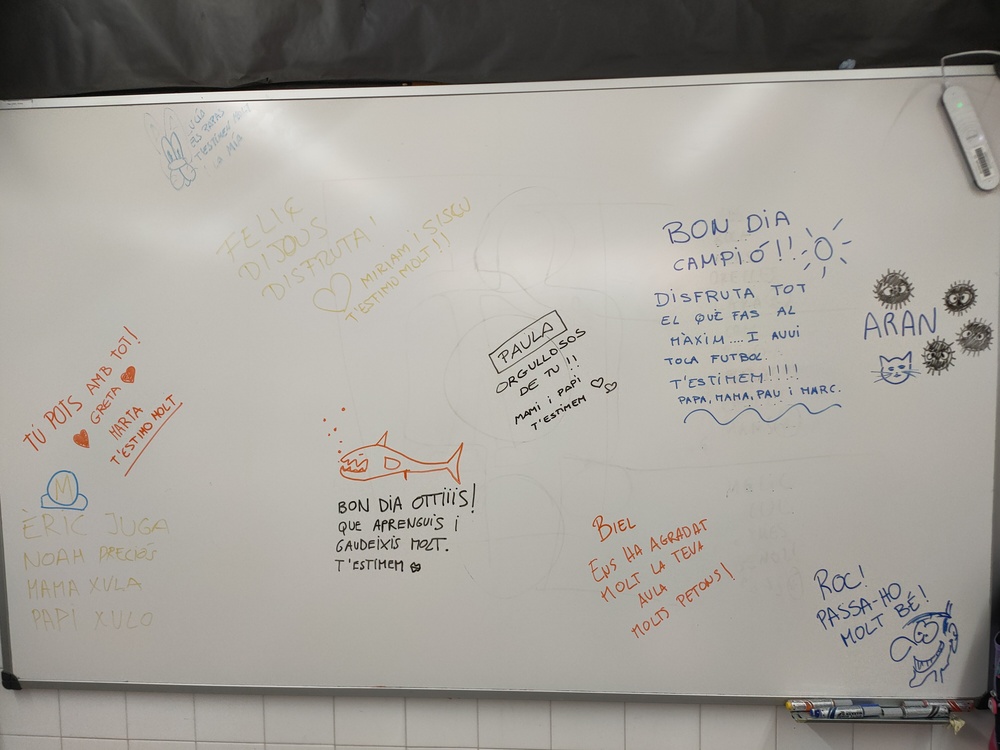 ELS PAPAS
T'ESTIMEM MOLT
LA MÍA
FELIÇ
DIJOUS
DISFRUTA!
MIRIAM I SISCU
T'ESTIMO MOLT!!
BON DIA
CAMPIÓ!!
DISFRUTA TOT
EL QUÈ FAS AL
MÀXIM.... I AVUI
TOCA FUTBOL.
T'ESTIMEM!!!!
PAPA, MAMA, PAU i MARC.
ARAN
PAULA
ORGULLOSOS
DE TU!!
MAMI i PAPI
T'ESTIMEM
TÚ POTS AMB TOT!
GRETA
MARTA
T'ESTIMO MOLT
M
ÈRIC JUGA
NOAH PRECIÓS
MAMA XULA
PAPI XULO
BON DIA OTTIIIS!
QUE APRENGUIS I
GAUDEIXIS MOLT.
T'ESTIMEM
BIEL
ENS HA AGRADAT
MOLT LA TEVA
AULA
MOLTS PETONS!
ROC!
PASSA-HO
MOLT BÉ!